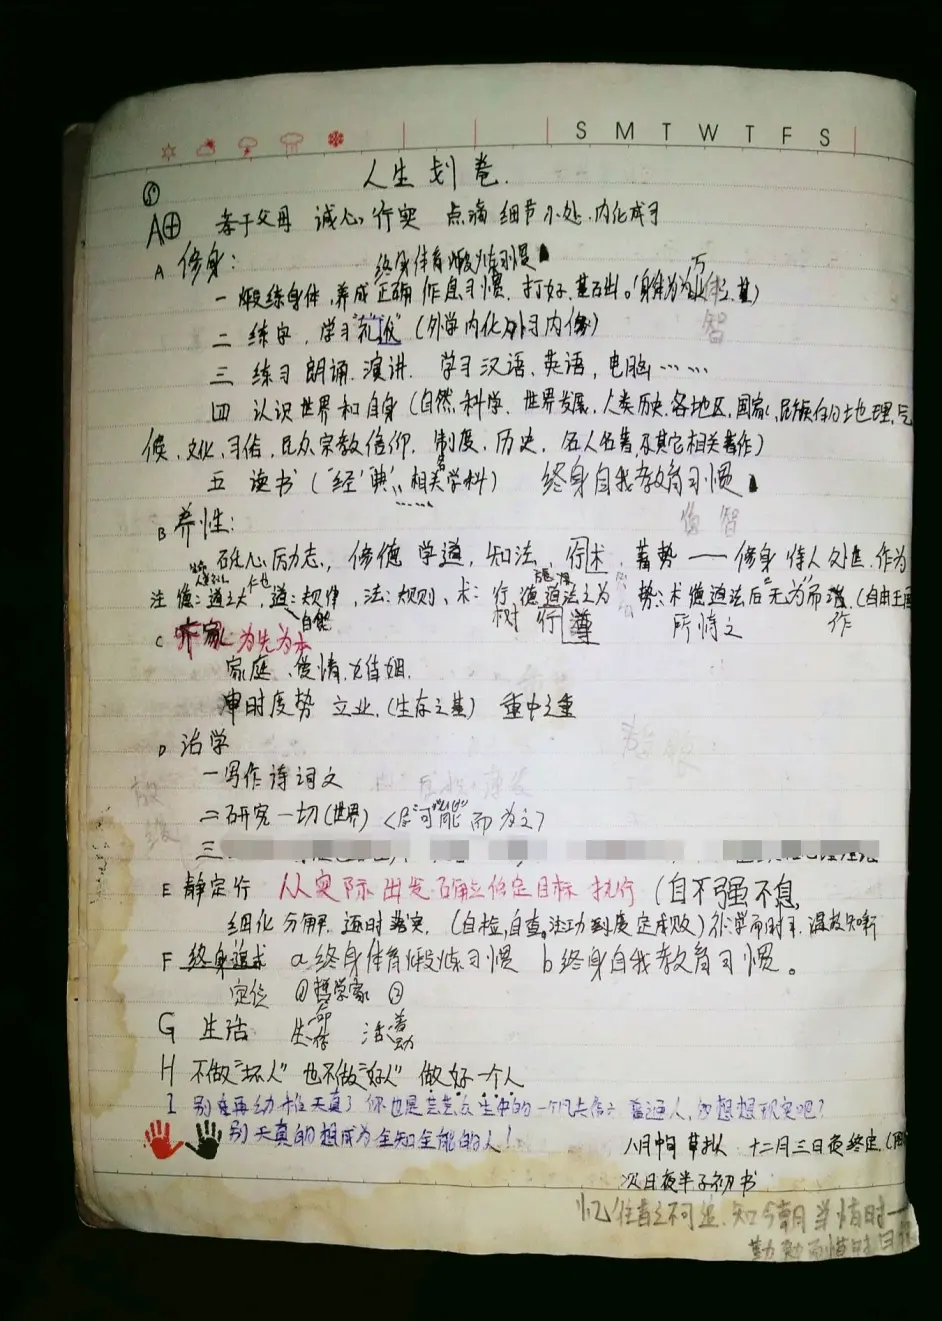 S M T W T F S
人生划卷.
A⊕ 孝于父母 诚心行实 点滴细节小处.内化成习
A 修身:
终身体育煅炼习惯
一 煅练身体,养成正确作息习惯.打好基石出。(身体为
智
二 练字,学习 (外学内化外习内修)
三 练习朗诵.演讲. 学习汉语、英语,电脑……
四 认识世界和自身(自然,科学.世界发展,人类历史,各地区,国家,民族的土也理,气
候,文化,习俗,民众宗教信仰.制度,历史,名人名著及其它相关著作)
五 读书(“经”典”,相关学科) 终身自我教育习惯
B 养性:
砥心厉志,修德 学道,知法、行术,蓄势——修身 待人处世.作为
注 德:道之大,道:规律,法:规则、术:行德道法之为 势:术德道法后“无为”而 (自由王国
自然 树 行 遵 所恃之 作
C 齐家:为先为本
家庭、爱情.婚姻.
审时度势 立业.(生存之基) 重中之重
D 治学
一写作诗词文
二研究一切(世界)<尽可能而为之>
三
E 静定行 从实际出发.确立你定目标 执行 (自不强不息,
细化分解.逐时落实.(自检,自查,注功到度定成败)
F 终身追求 a终身体育煅炼习惯 b终身自我教育习惯。
定位 ①哲学家 ②
G 生活 生命存 活着动
H 不做“坏人” 也不做“好人” 做好一个人
I 别在再幼稚天真了你也是芸芸众生中的一个 普通人,
别天真的想成为全知全能的人!
八月中旬草拟 十二月三日夜终定.
次日夜半子初书
忆往者之不可追.知今朝当惜时